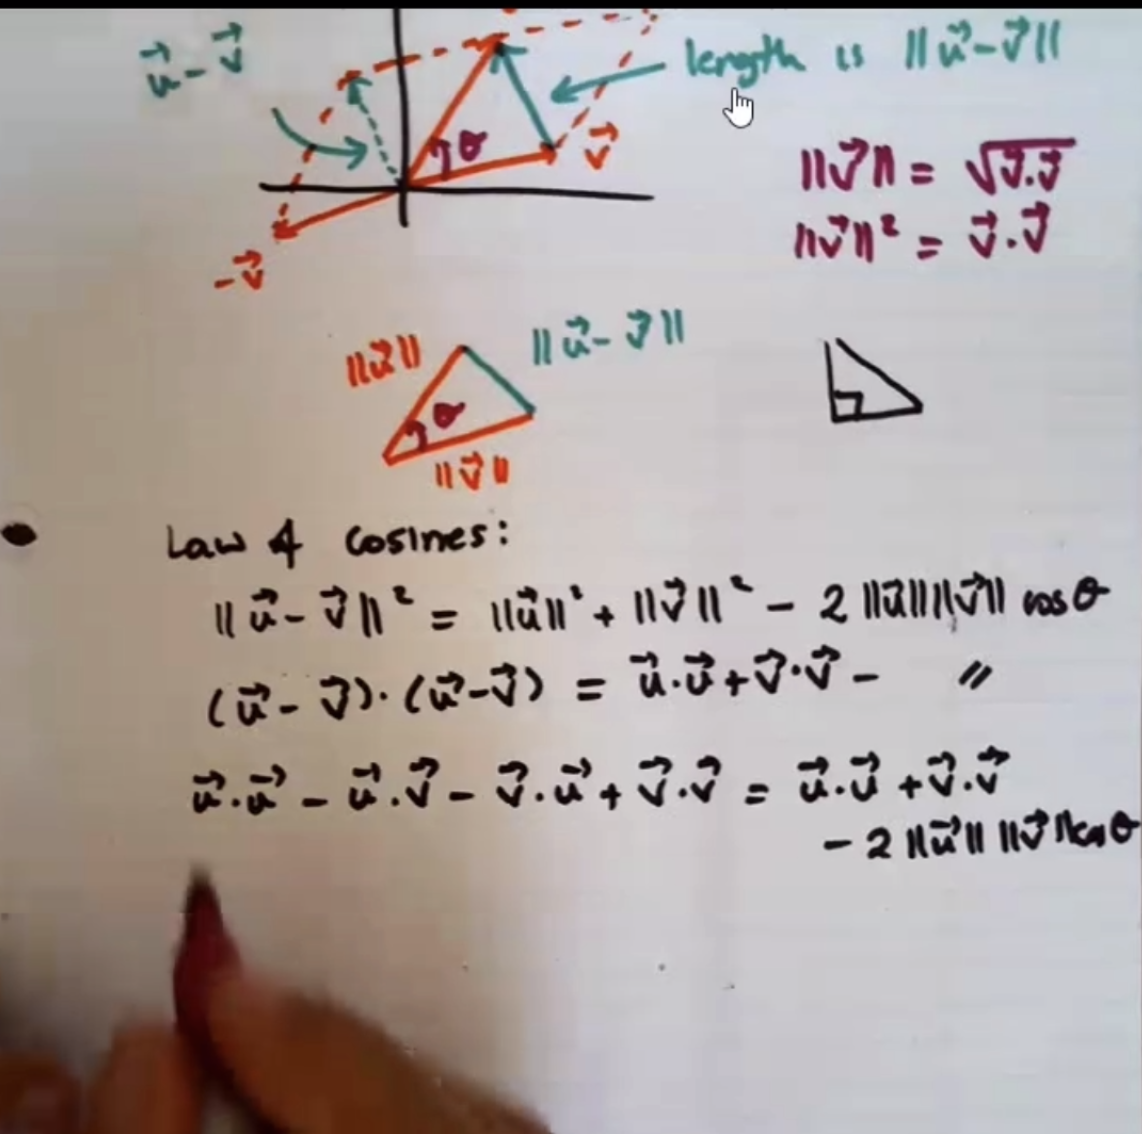 u⃗ - v⃗
length is ||u⃗ - v⃗||
θ
v⃗
||v⃗|| = √v⃗.v⃗
||v⃗||² = v⃗.v⃗
-v⃗
||u⃗||
||u⃗ - v⃗||
θ
||v⃗||
Law of cosines:
||u⃗ - v⃗||² = ||u⃗||² + ||v⃗||² - 2 ||u⃗|| ||v⃗|| cos θ
(u⃗ - v⃗).(u⃗ - v⃗) = u⃗.u⃗ + v⃗.v⃗ - 〃
u⃗.u⃗ - u⃗.v⃗ - v⃗.u⃗ + v⃗.v⃗ = u⃗.u⃗ + v⃗.v⃗
- 2 ||u⃗|| ||v⃗|| cos θ